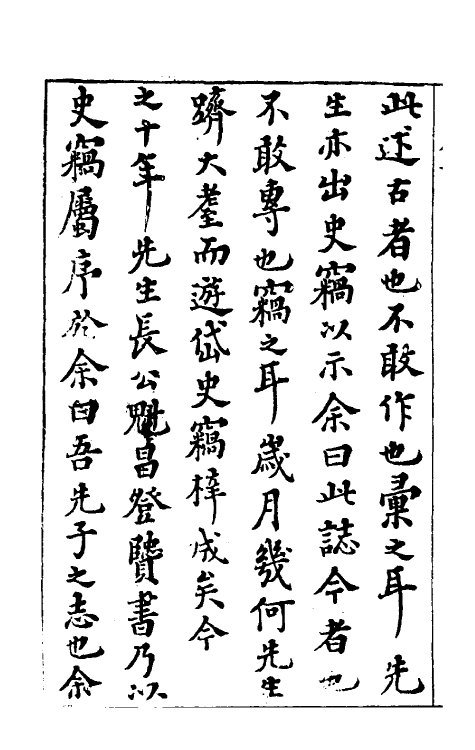 此述古者也不敢作也彙之耳先
生亦出史竊以示余曰此誌今者也
不敢專也竊之耳歲月幾何先生
躋大耋而遊岱史竊梓成矣今
之十年先生長公魁昌登賢書乃以
史竊屬序於余曰吾先子之志也余